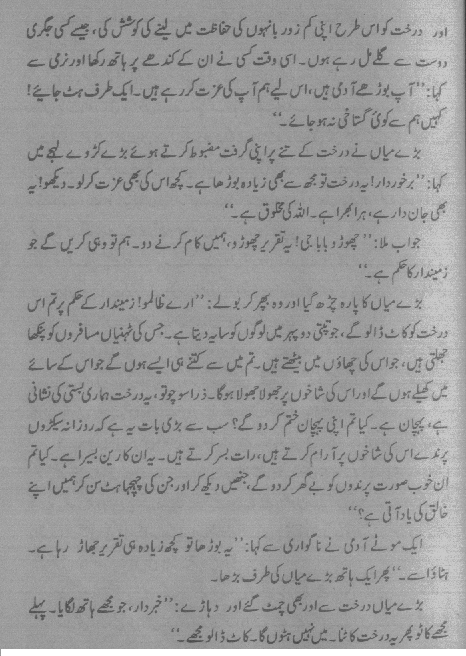 اور درخت کو اس طرح اپنی کم زور بانہوں کی حفاظت میں لینے کی کوشش کی، جیسے کسی جگری
دوست سے گلے مل رہے ہوں۔ اسی وقت کسی نے ان کے کندھے پر ہاتھ رکھا اور نرمی سے
کہا: ’’آپ بوڑھے آدمی ہیں، اس لیے ہم آپ کی عزت کر رہے ہیں۔ ایک طرف ہٹ جائیے!
کہیں ہم سے کوئی گستاخی نہ ہو جائے۔‘‘
بڑے میاں نے درخت کے تنے پر اپنی گرفت مضبوط کرتے ہوئے بڑے کڑوے لہجے میں
کہا: ’’برخوردار! یہ درخت تو مجھ سے بھی زیادہ بوڑھا ہے۔ کچھ اس کی بھی عزت کر لو۔ دیکھو! یہ
بھی جان دار ہے، ہرا بھرا ہے۔ اللہ کی مخلوق ہے۔‘‘
جواب ملا: ’’چھوڑو بابا جی! یہ تقریر چھوڑو، ہمیں کام کرنے دو۔ ہم تو وہی کریں گے جو
زمیندار کا حکم ہے۔‘‘
بڑے میاں کا پارہ چڑھ گیا اور وہ بپھر کر بولے: ’’ارے ظالمو! زمیندار کے حکم پر تم اس
درخت کو کاٹ ڈالو گے، جو تپتی دوپہر میں لوگوں کو سایہ دیتا ہے۔ جس کی ٹہنیاں مسافروں کو پنکھا
جھلتی ہیں، جو اس کی چھاؤں میں بیٹھتے ہیں۔ تم میں سے کتنے ہی ایسے ہوں گے جو اس کے سائے
میں کھیلے ہوں گے اور اس کی شاخوں پر جھولا جھولا ہوگا۔ ذرا سوچو تو، یہ درخت ہماری بستی کی نشانی
ہے، پہچان ہے۔ کیا تم اپنی پہچان ختم کر دو گے؟ سب سے بڑی بات یہ ہے کہ روزانہ سیکڑوں
پرندے اس کی شاخوں پر آرام کرتے ہیں، رات بسر کرتے ہیں۔ یہ ان کا رین بسیرا ہے۔ کیا تم
ان خوب صورت پرندوں کو بے گھر کر دو گے، جنھیں دیکھ کر اور جن کی چہچہاہٹ سن کر ہمیں اپنے
خالق کی یاد آتی ہے؟‘‘
ایک موٹے آدمی نے ناگواری سے کہا: ’’یہ بوڑھا تو کچھ زیادہ ہی تقریر جھاڑ رہا ہے۔
ہٹاؤ اسے۔‘‘ پھر ایک ہاتھ بڑے میاں کی طرف بڑھا۔
بڑے میاں درخت سے اور بھی چمٹ گئے اور دہاڑے: ’’خبردار، جو مجھے ہاتھ لگایا۔ پہلے
مجھے کاٹو پھر یہ درخت کاٹنا۔ میں نہیں ہٹوں گا۔ کاٹ ڈالو مجھے۔‘‘